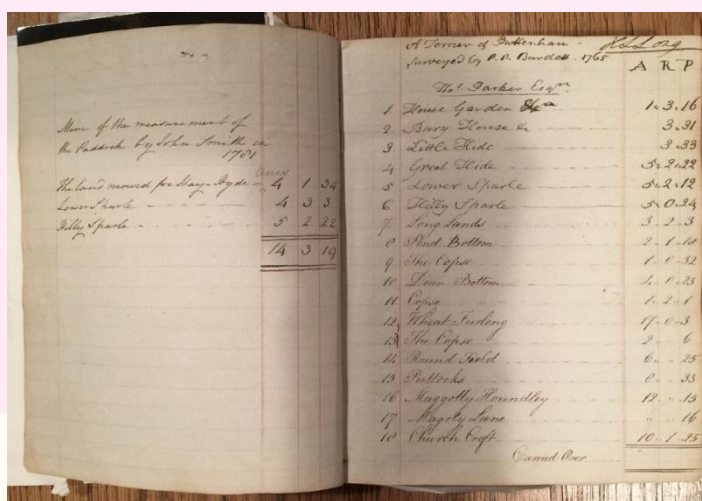 Mem. of the measurement of
the Paddock by John Smith in
1781
acres
The land mowed for Hay - Hyde - 4 1 34
Lower Sparle - - 4 3 3
Hilly Sparle - - - - 5 2 22
14 3 19
A Terrier of Puttenham - H L Long
Surveyed by P. P. Burdett - 1765
A R P
Thos. Parker Esqr.
1 House Garden &c 1 . 3 . 16
2 Bury House &c 3 . 31
3 Little Hide 3 . 33
4 Great Hide 5 . 2 . 22
5 Lower Sparle 5 . 2 . 12
6 Hilly Sparle 5 . 0 . 24
7 Long Lands 3 . 2 . 3
8 Pond Bottom 2 . 1 . 18
9 The Copse 1 . 0 . 32
10 Down Bottom 4 . 0 . 25
11 Copse 1 . 2 . 1
12 Wheat Furlong 17 . 0 . 3
13 The Copse 2 . . 6
14 Round Field 6 . . 25
15 Puttocks 8 . . 33
16 Maggotty Houndley 12 . . 15
17 Magoty Lane " . . 16
18 Church Croft 10 . 1 . 25
Carried Over